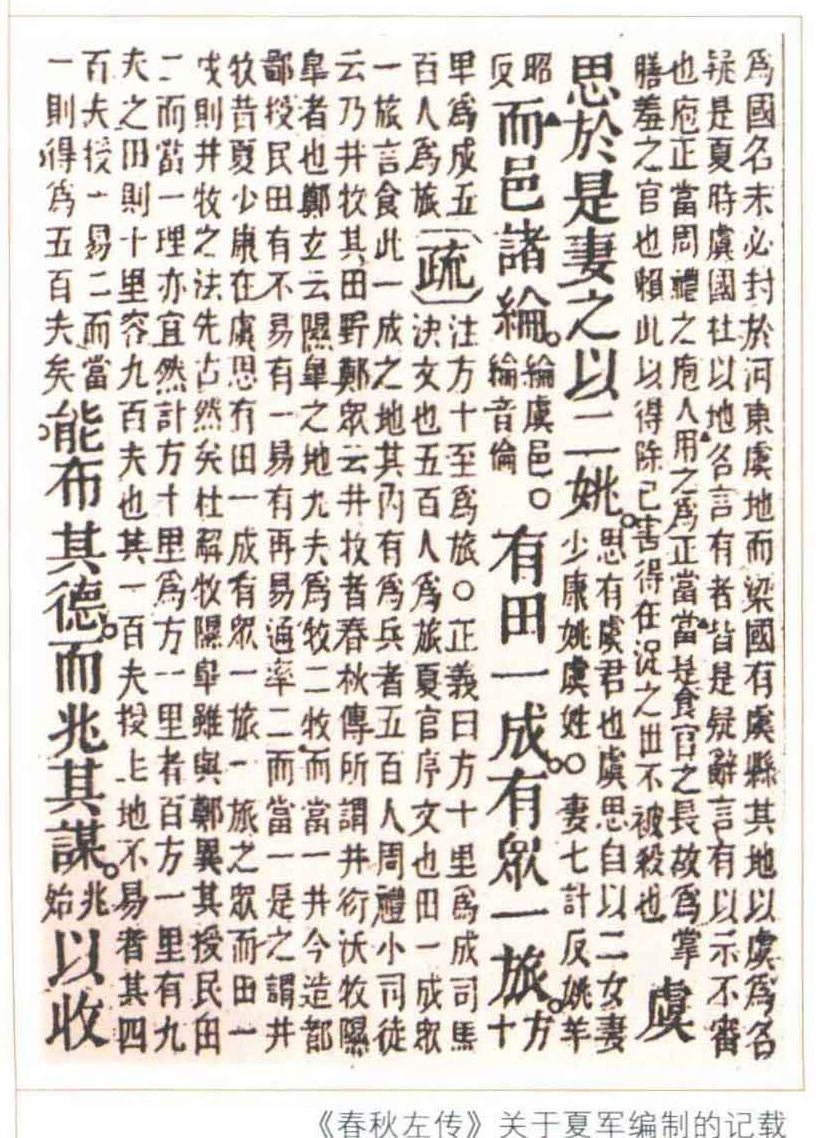 爲國名未必封於河東虞地而梁國有虞縣其地以虞爲名
疑是夏時虞國杜以地名言有者皆是疑辭言有以示不審
也庖正當周禮之庖人用之爲正當當是食官之長故爲掌
膳羞之官也賴此以得除己害得在浞之世不被殺也虞
思於是妻之以二姚。思有虞君也虞思自以二女妻
少康姚虞姓○○妻七計反姚羊
昭
反而邑諸綸。綸虞邑○
綸音倫
有田一成有眾一旅。方
十
里爲成五
百人爲旅
〔疏〕
注方十至爲旅○正義曰方十里爲成司馬
決文也五百人爲旅夏官序文也田一成眾
一旅言食此一成之地其內有爲兵者五百人周禮小司徒
云乃井牧其田野鄭眾云井牧者春秋傳所謂井衍沃牧隰
皐者也鄭玄云隰皐之地九夫爲牧二牧而當一井今造都
鄙授民田有不易有一易有再易通率二而當一是之謂井
牧昔夏少康在虞思有田一成有眾一旅一旅之眾而田一
成則井牧之法先古然矣杜解牧隰皐雖與鄭異其授民田
二而當一理亦宜然計方十里爲方一里者百方一里有九
夫之田則十里容九百夫也其一百夫授上地不易者其四
百夫授一易二而當
一則得爲五百夫矣
能布其德。而兆其謀。兆
始
以收
《春秋左传》关于夏军编制的记载